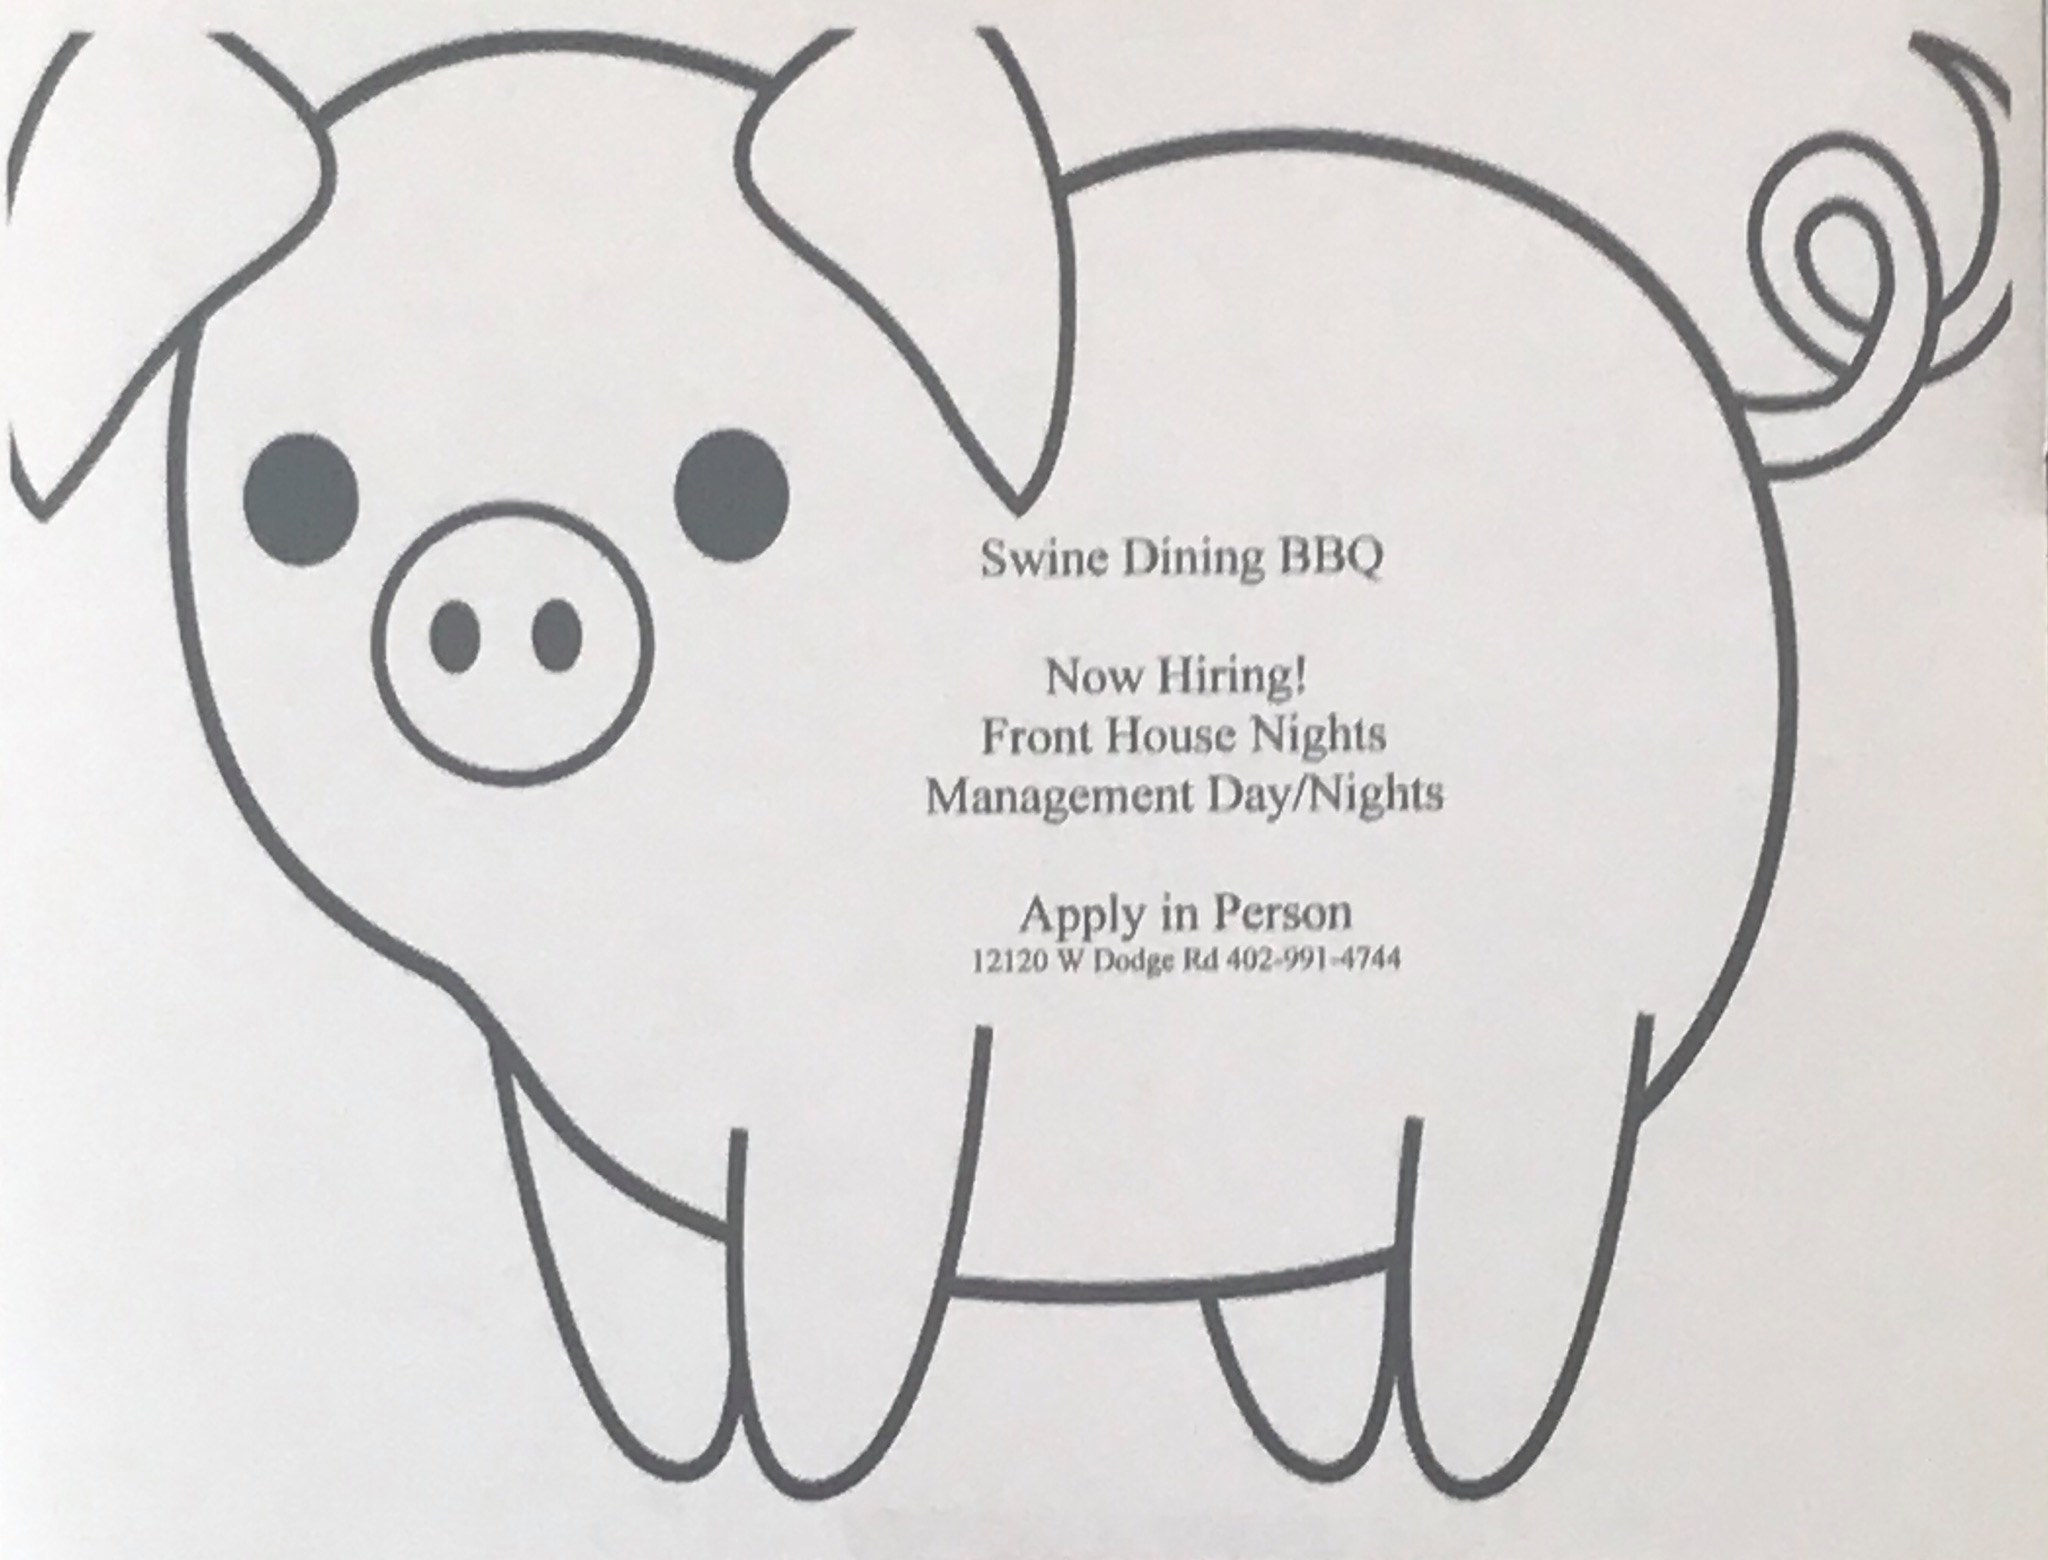 Swine Dining BBQ
Now Hiring!
Front House Nights
Management Day/Nights
Apply in Person
12120 W Dodge Rd 402-991-4744